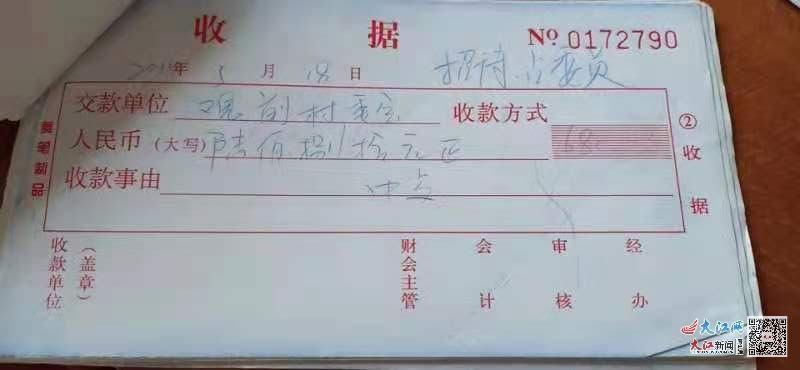 收 据 № 0172790
年 5 月 18 日 招待
交款单位 观前村委会 收款方式
人民币(大写) 陆佰捌拾元正 680
收款事由
美笔制品
②收据
收款单位(盖章) 财会主管 会计 审核 经办
大江网
大江新闻